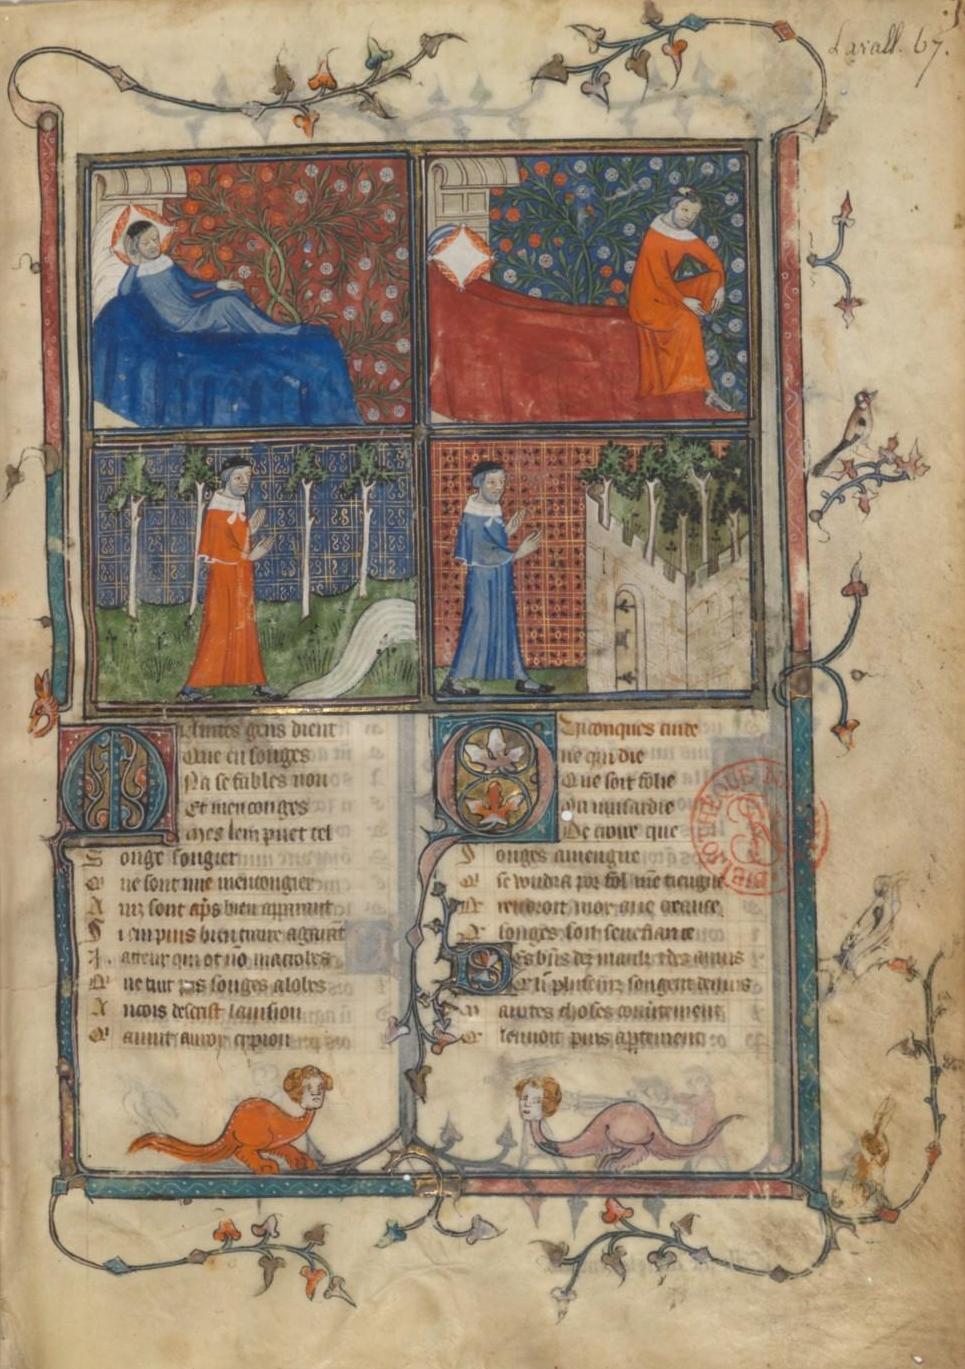 Lavall. 67.
Maintes gens dient
Que en songes
Na se fables non
Et menconges
Mes len puet tel
Songe songier
Que sont mie mencongier
Ainz sont apres bien aparant
Si en puis bien traire a garant
.I. acteur qui ot no macrobes
Que ne tint pas songes a lobes
Ancois descrist la vision
Qui avint au roy cypion
Quiconques cuide
ne qui die
Que soit folie
ou musardie
De croire que
songes aviengne
Qui se voudra por fol men tiengne
Endroit moi ai ie creance
Que songes soit senefiance
Des biens des maulx et des anuis
Que li pluseurs songent de nuis